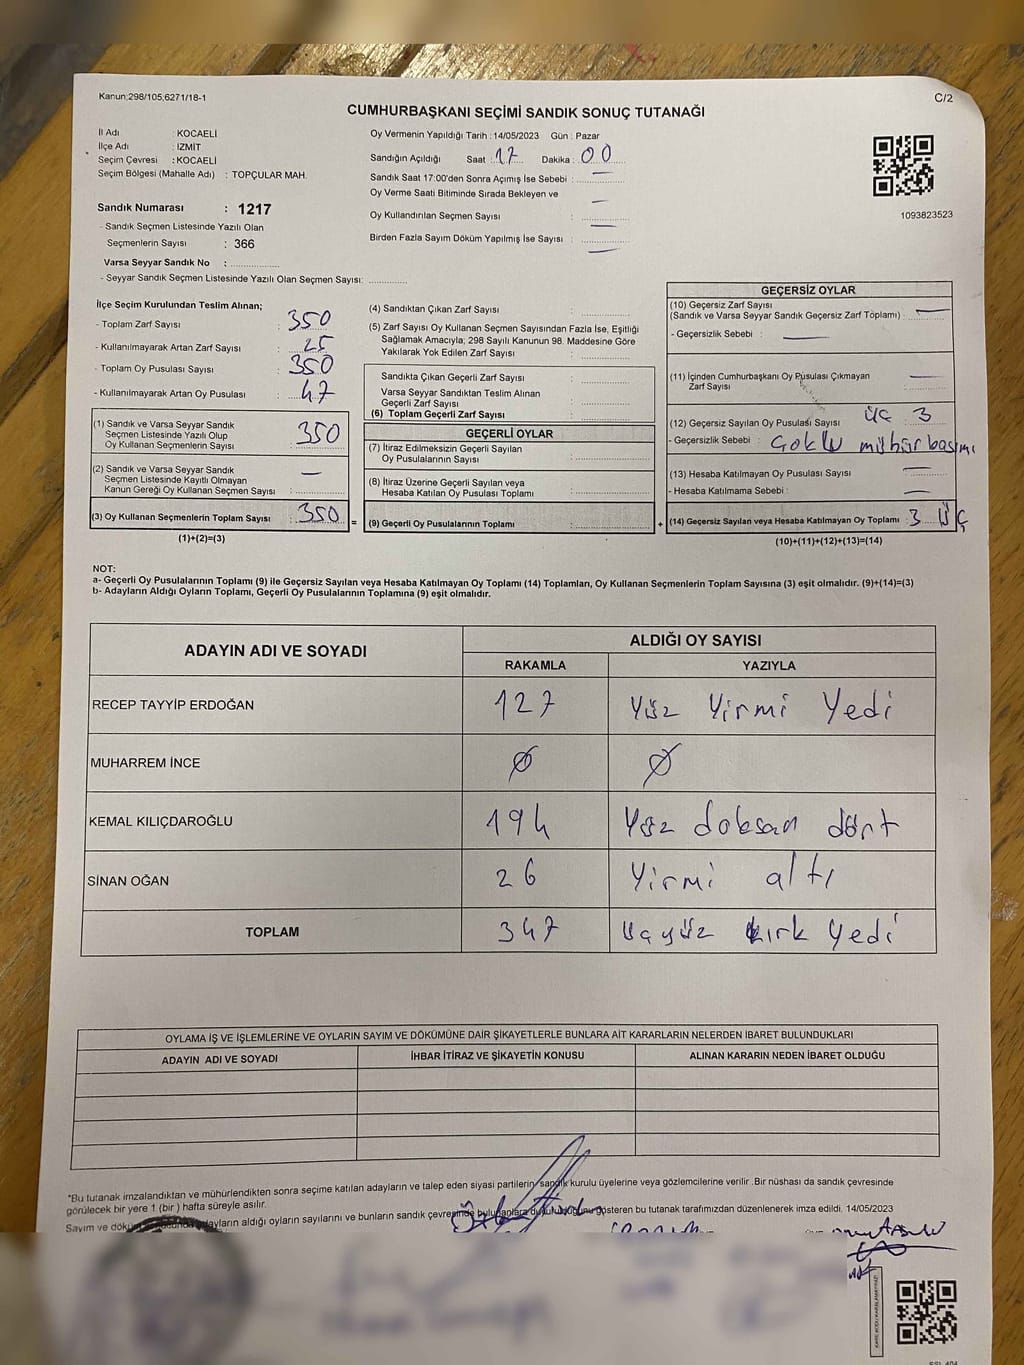 Kanun;298/105;6271/18-1
C/2
CUMHURBAŞKANI SEÇİMİ SANDIK SONUÇ TUTANAĞI
İl Adı : KOCAELİ
İlçe Adı : İZMİT
Seçim Çevresi : KOCAELİ
Seçim Bölgesi (Mahalle Adı) : TOPÇULAR MAH.
Sandık Numarası : 1217
- Sandık Seçmen Listesinde Yazılı Olan
Seçmenlerin Sayısı : 366
Varsa Seyyar Sandık No :
- Seyyar Sandık Seçmen Listesinde Yazılı Olan Seçmen Sayısı:
Oy Vermenin Yapıldığı Tarih : 14/05/2023 Gün : Pazar
Sandığın Açıldığı Saat : 17 Dakika : 00
Sandık Saat 17:00'den Sonra Açımış İse Sebebi : —
Oy Verme Saati Bitiminde Sırada Bekleyen ve
Oy Kullandırılan Seçmen Sayısı : —
Birden Fazla Sayım Döküm Yapılmış İse Sayısı : —
1093823523
İlçe Seçim Kurulundan Teslim Alınan;
- Toplam Zarf Sayısı : 350
- Kullanılmayarak Artan Zarf Sayısı : 25
- Toplam Oy Pusulası Sayısı : 350
- Kullanılmayarak Artan Oy Pusulası : 47
(1) Sandık ve Varsa Seyyar Sandık
Seçmen Listesinde Yazılı Olup
Oy Kullanan Seçmenlerin Sayısı : 350
(2) Sandık ve Varsa Seyyar Sandık
Seçmen Listesinde Kayıtlı Olmayan
Kanun Gereği Oy Kullanan Seçmen Sayısı : —
(3) Oy Kullanan Seçmenlerin Toplam Sayısı : 350
(1)+(2)=(3)
(4) Sandıktan Çıkan Zarf Sayısı :
(5) Zarf Sayısı Oy Kullanan Seçmen Sayısından Fazla İse, Eşitliği
Sağlamak Amacıyla; 298 Sayılı Kanunun 98. Maddesine Göre
Yakılarak Yok Edilen Zarf Sayısı :
Sandıkta Çıkan Geçerli Zarf Sayısı :
Varsa Seyyar Sandıktan Teslim Alınan
Geçerli Zarf Sayısı :
(6) Toplam Geçerli Zarf Sayısı :
GEÇERLİ OYLAR
(7) İtiraz Edilmeksizin Geçerli Sayılan
Oy Pusulalarının Sayısı :
(8) İtiraz Üzerine Geçerli Sayılan veya
Hesaba Katılan Oy Pusulası Toplamı :
= (9) Geçerli Oy Pusulalarının Toplamı : +
GEÇERSİZ OYLAR
(10) Geçersiz Zarf Sayısı
(Sandık ve Varsa Seyyar Sandık Geçersiz Zarf Toplamı) : —
- Geçersizlik Sebebi : —
(11) İçinden Cumhurbaşkanı Oy Pusulası Çıkmayan
Zarf Sayısı : —
(12) Geçersiz Sayılan Oy Pusulası Sayısı : üç 3
- Geçersizlik Sebebi : Çoklu mühür basımı
(13) Hesaba Katılmayan Oy Pusulası Sayısı : —
- Hesaba Katılmama Sebebi : —
(14) Geçersiz Sayılan veya Hesaba Katılmayan Oy Toplamı : 3 üÇ
(10)+(11)+(12)+(13)=(14)
NOT:
a- Geçerli Oy Pusulalarının Toplamı (9) ile Geçersiz Sayılan veya Hesaba Katılmayan Oy Toplamı (14) Toplamları, Oy Kullanan Seçmenlerin Toplam Sayısına (3) eşit olmalıdır. (9)+(14)=(3)
b- Adayların Aldığı Oyların Toplamı, Geçerli Oy Pusulalarının Toplamına (9) eşit olmalıdır.
ADAYIN ADI VE SOYADI ALDIĞI OY SAYISI
RAKAMLA YAZIYLA
RECEP TAYYİP ERDOĞAN 127 Yüz Yirmi Yedi
MUHARREM İNCE Ø Ø
KEMAL KILIÇDAROĞLU 194 Yüz doksan dört
SİNAN OĞAN 26 Yirmi altı
TOPLAM 347 Üçyüz kırk Yedi
OYLAMA İŞ VE İŞLEMLERİNE VE OYLARIN SAYIM VE DÖKÜMÜNE DAİR ŞİKAYETLERLE BUNLARA AİT KARARLARIN NELERDEN İBARET BULUNDUKLARI
ADAYIN ADI VE SOYADI İHBAR İTİRAZ VE ŞİKAYETİN KONUSU ALINAN KARARIN NEDEN İBARET OLDUĞU
*Bu tutanak imzalandıktan ve mühürlendikten sonra seçime katılan adayların ve talep eden siyasi partilerin sandık kurulu üyelerine veya gözlemcilerine verilir. Bir nüshası da sandık çevresinde
görülecek bir yere 1 (bir ) hafta süreyle asılır.
Sayım ve döküm adayların aldığı oyların sayılarını ve bunların sandık çevresinde gösteren bu tutanak tarafımızdan düzenlenerek imza edildi. 14/05/2023